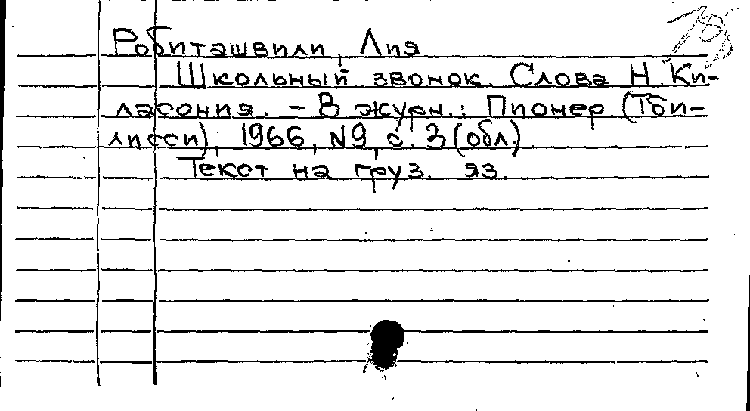 Робиташвили, Лия
Школьный звонок. Слова Н. Ки-
ласония. – В журн.: Пионер (Тби-
лисси), 1966, №9, с. 3 (обл.)
Текст на груз. яз.